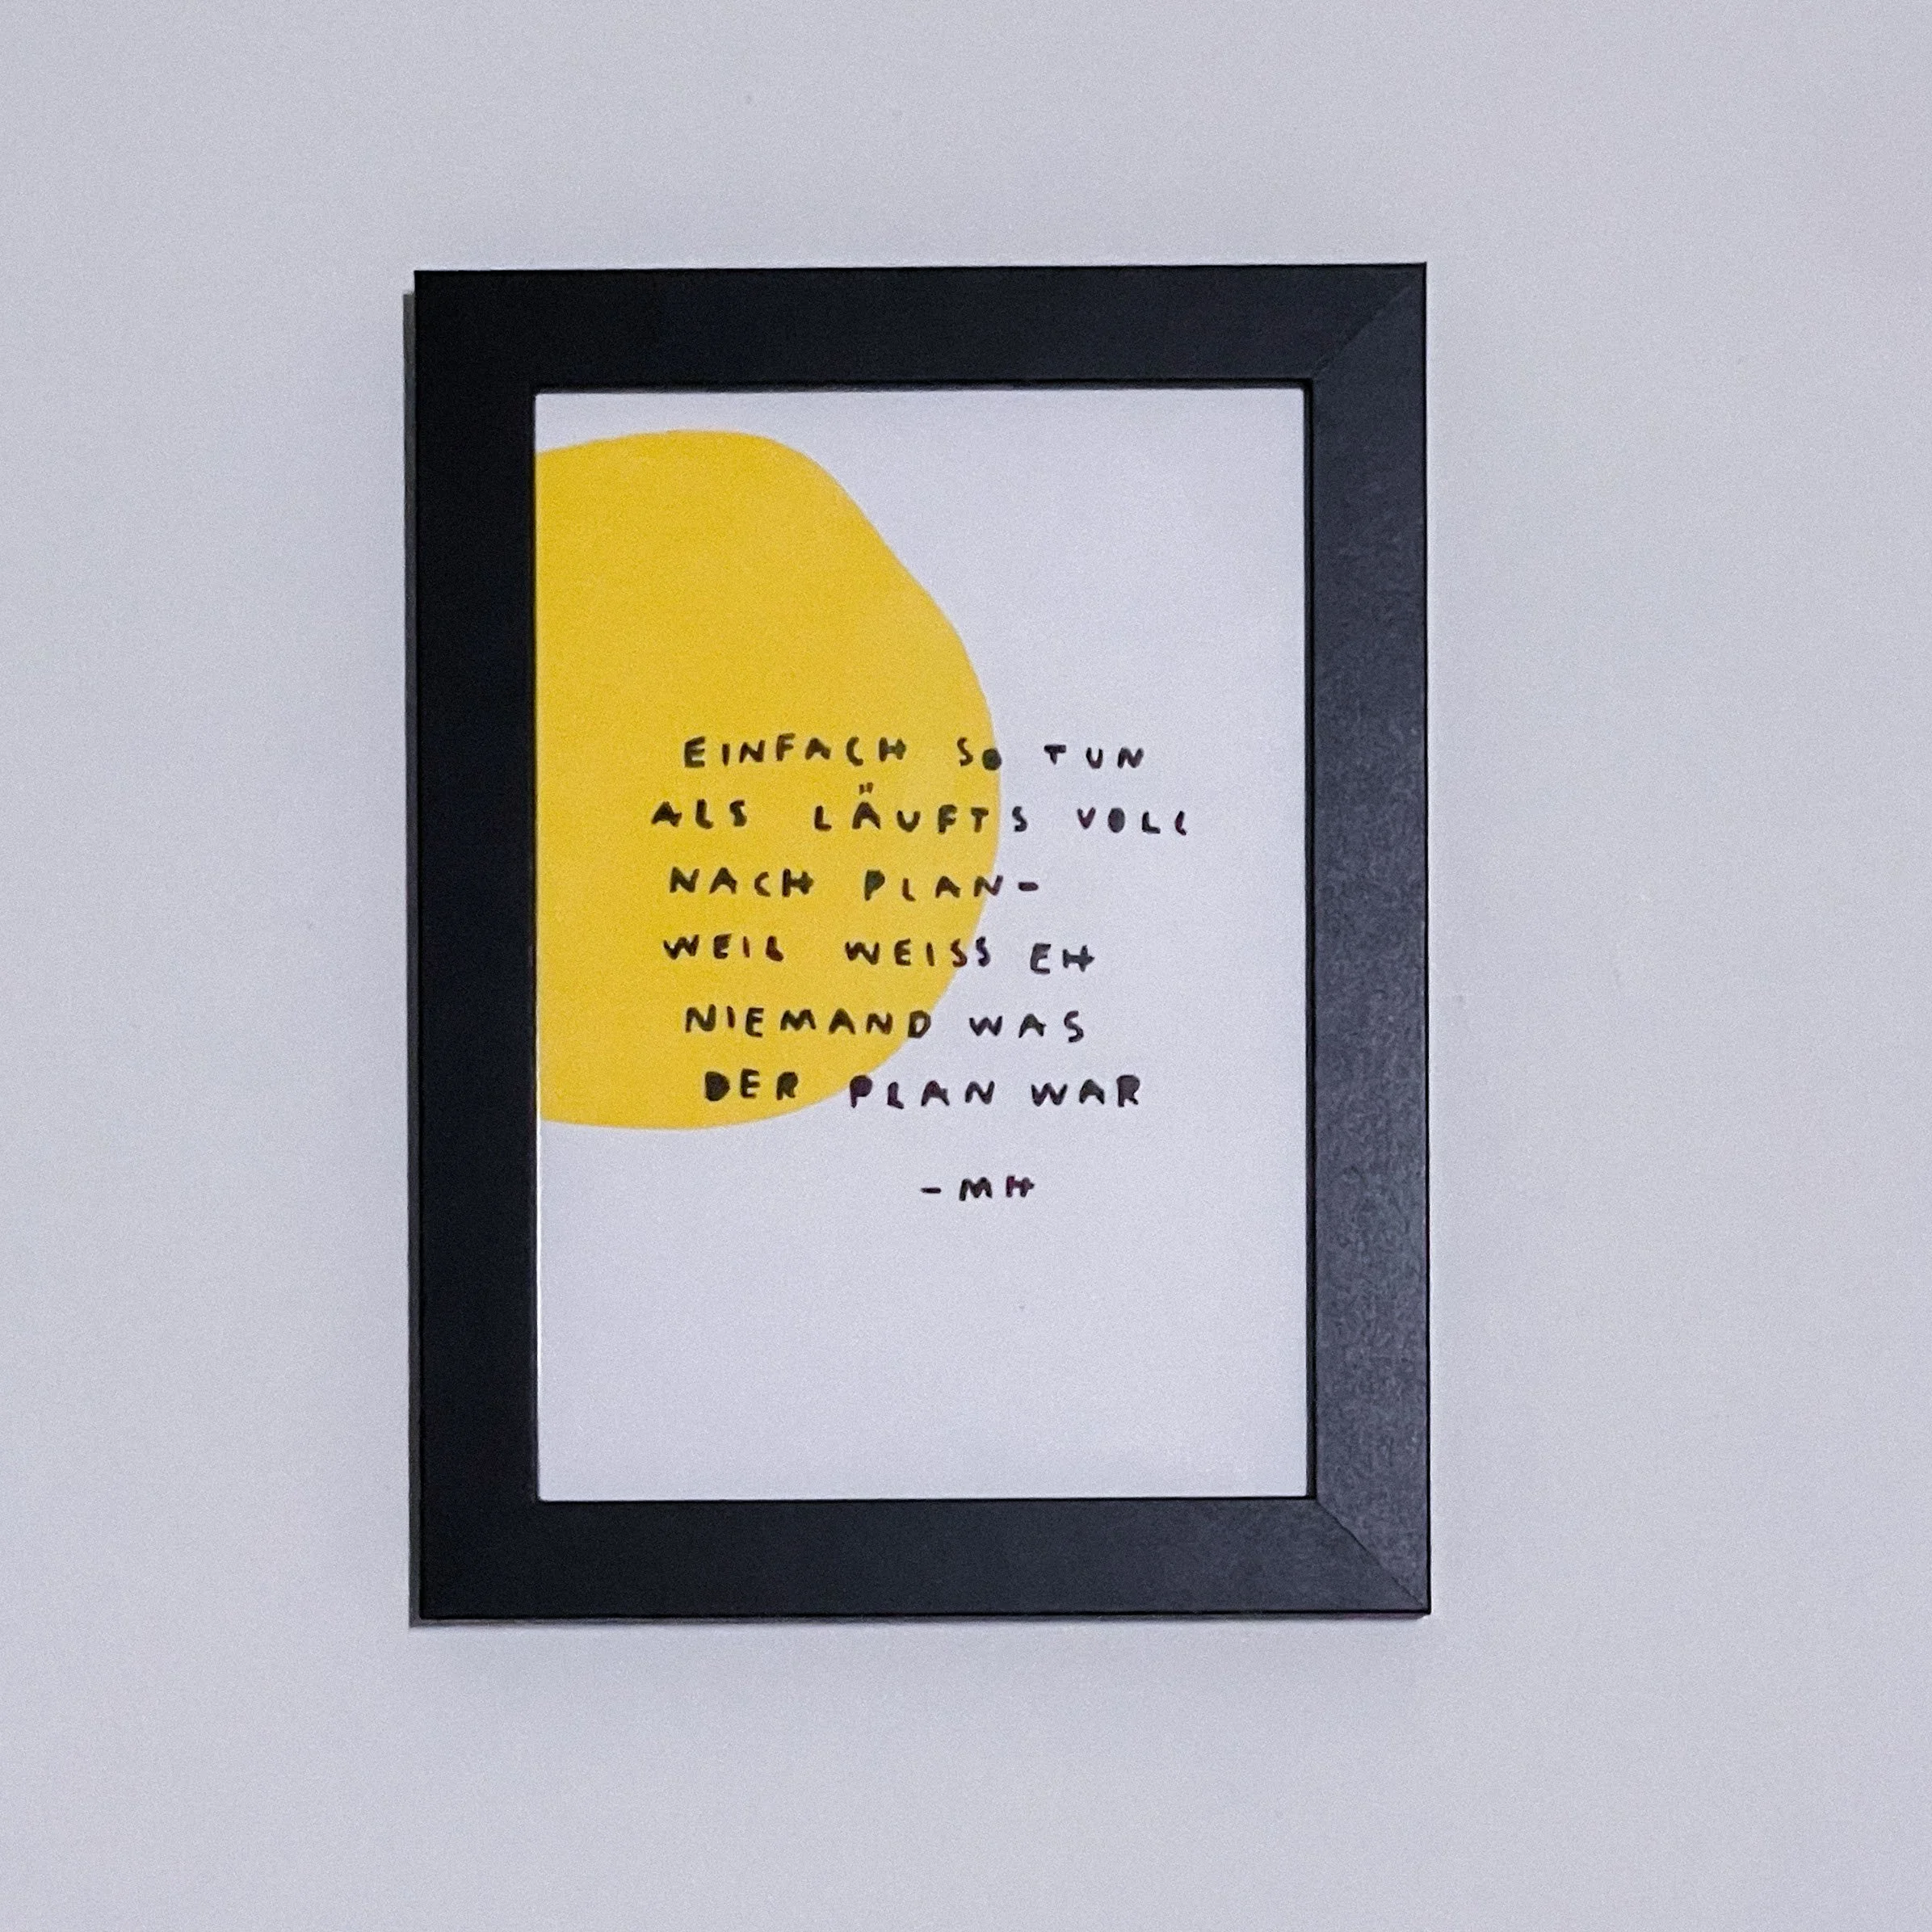 EINFACH SO TUN
ALS LÄUFTS VOLL
NACH PLAN-
WEIL WEISS EH
NIEMAND WAS
DER PLAN WAR
-MH